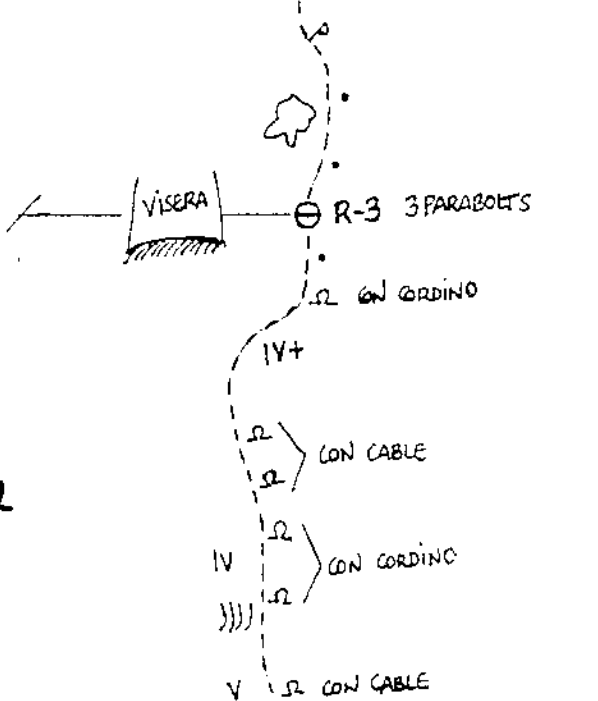 VISERA
R-3 3 PARABOLTS
Ω CON CORDINO
IV+
Ω
Ω
CON CABLE
Ω
IV
CON CORDINO
Ω
V Ω CON CABLE